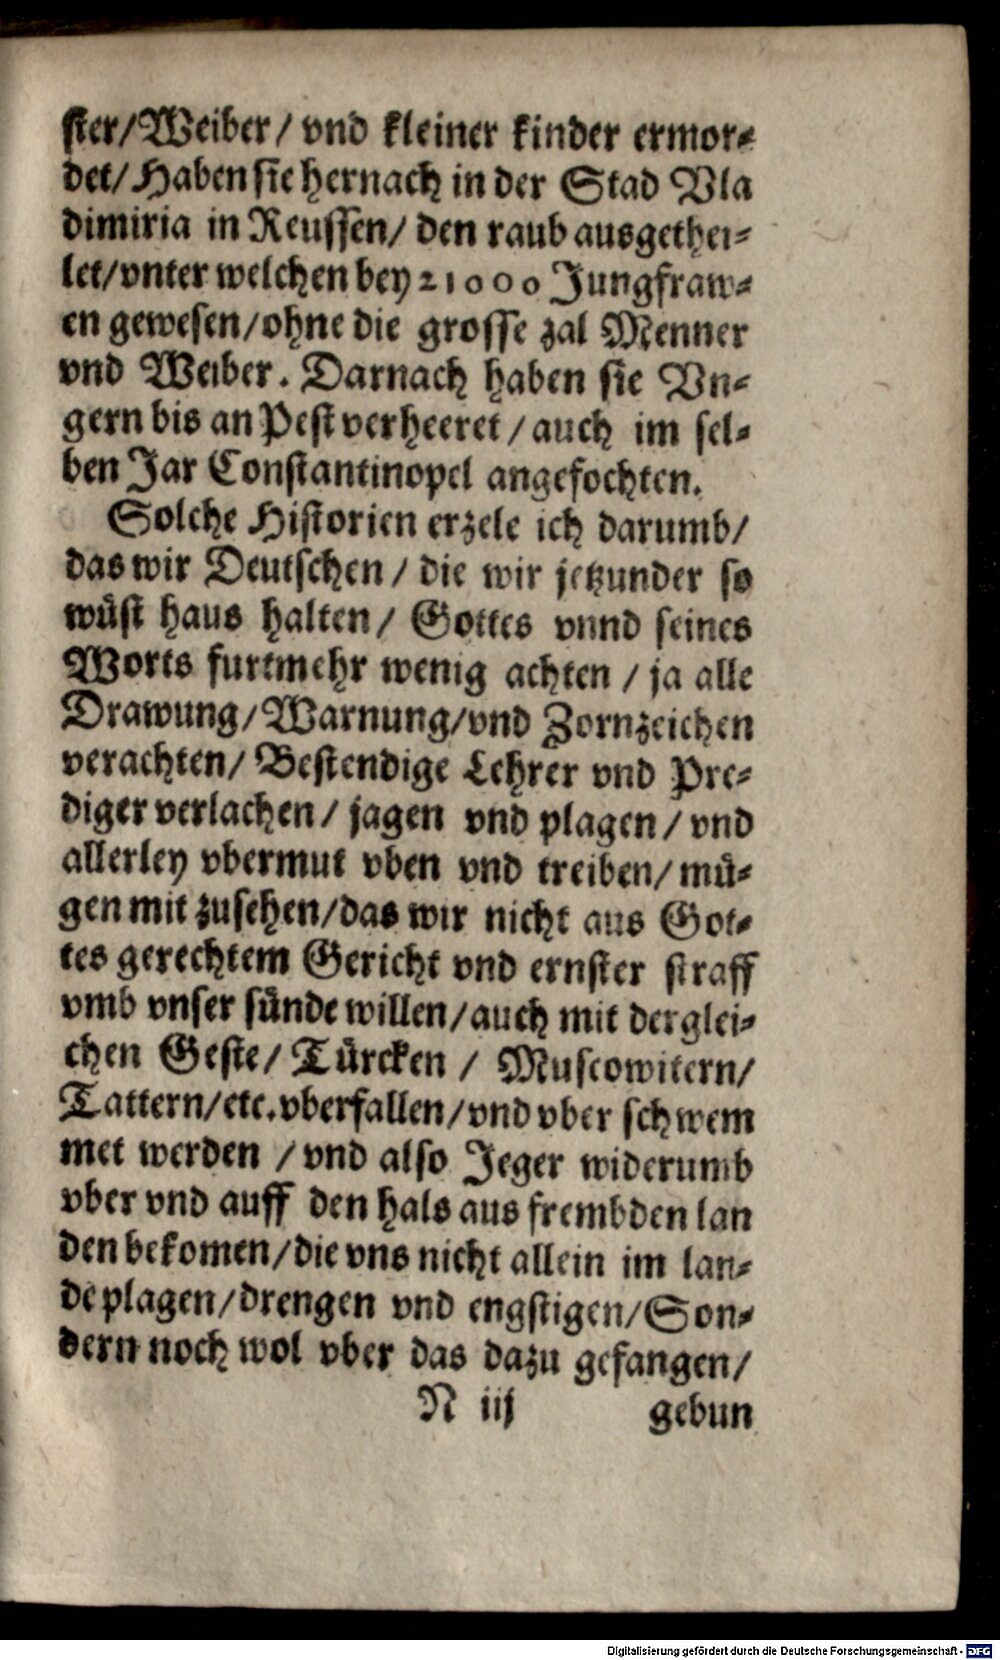 ster/Weiber/ vnd kleiner kinder ermor⸗
det/Haben sie hernach in der Stad Vla
dimiria in Reussen/ den raub ausgethei⸗
let/vnter welchen bey 21000 Jungfraw⸗
en gewesen/ohne die grosse zal Menner
vnd Weiber. Darnach haben sie Vn⸗
gern bis an Pest verheeret/auch im sel⸗
ben Jar Constantinopel angefochten.
Solche Historien erzele ich darumb/
das wir Deutschen/ die wir jetzunder so
wüst haus halten/ Gottes vnnd seines
Worts furtmehr wenig achten/ ja alle
Drawung/Warnung/vnd Zornzeichen
verachten/ Bestendige Lehrer vnd Pre⸗
diger verlachen/ jagen vnd plagen/ vnd
allerley vbermut vben vnd treiben/ mü⸗
gen mit zusehen/das wir nicht aus Got⸗
tes gerechtem Gericht vnd ernster straff
vmb vnser sünde willen/auch mit derglei⸗
chen Geste/ Türcken/ Muscowitern/
Tattern/etc.vberfallen/vnd vber schwem
met werden/vnd also Jeger widerumb
vber vnd auff den hals aus frembden lan
den bekomen/die vns nicht allein im lan⸗
de plagen/drengen vnd engstigen/Son⸗
dern noch wol vber das dazu gefangen/
N iij gebun
Digitalisierung gefördert durch die Deutsche Forschungsgemeinschaft - DFG